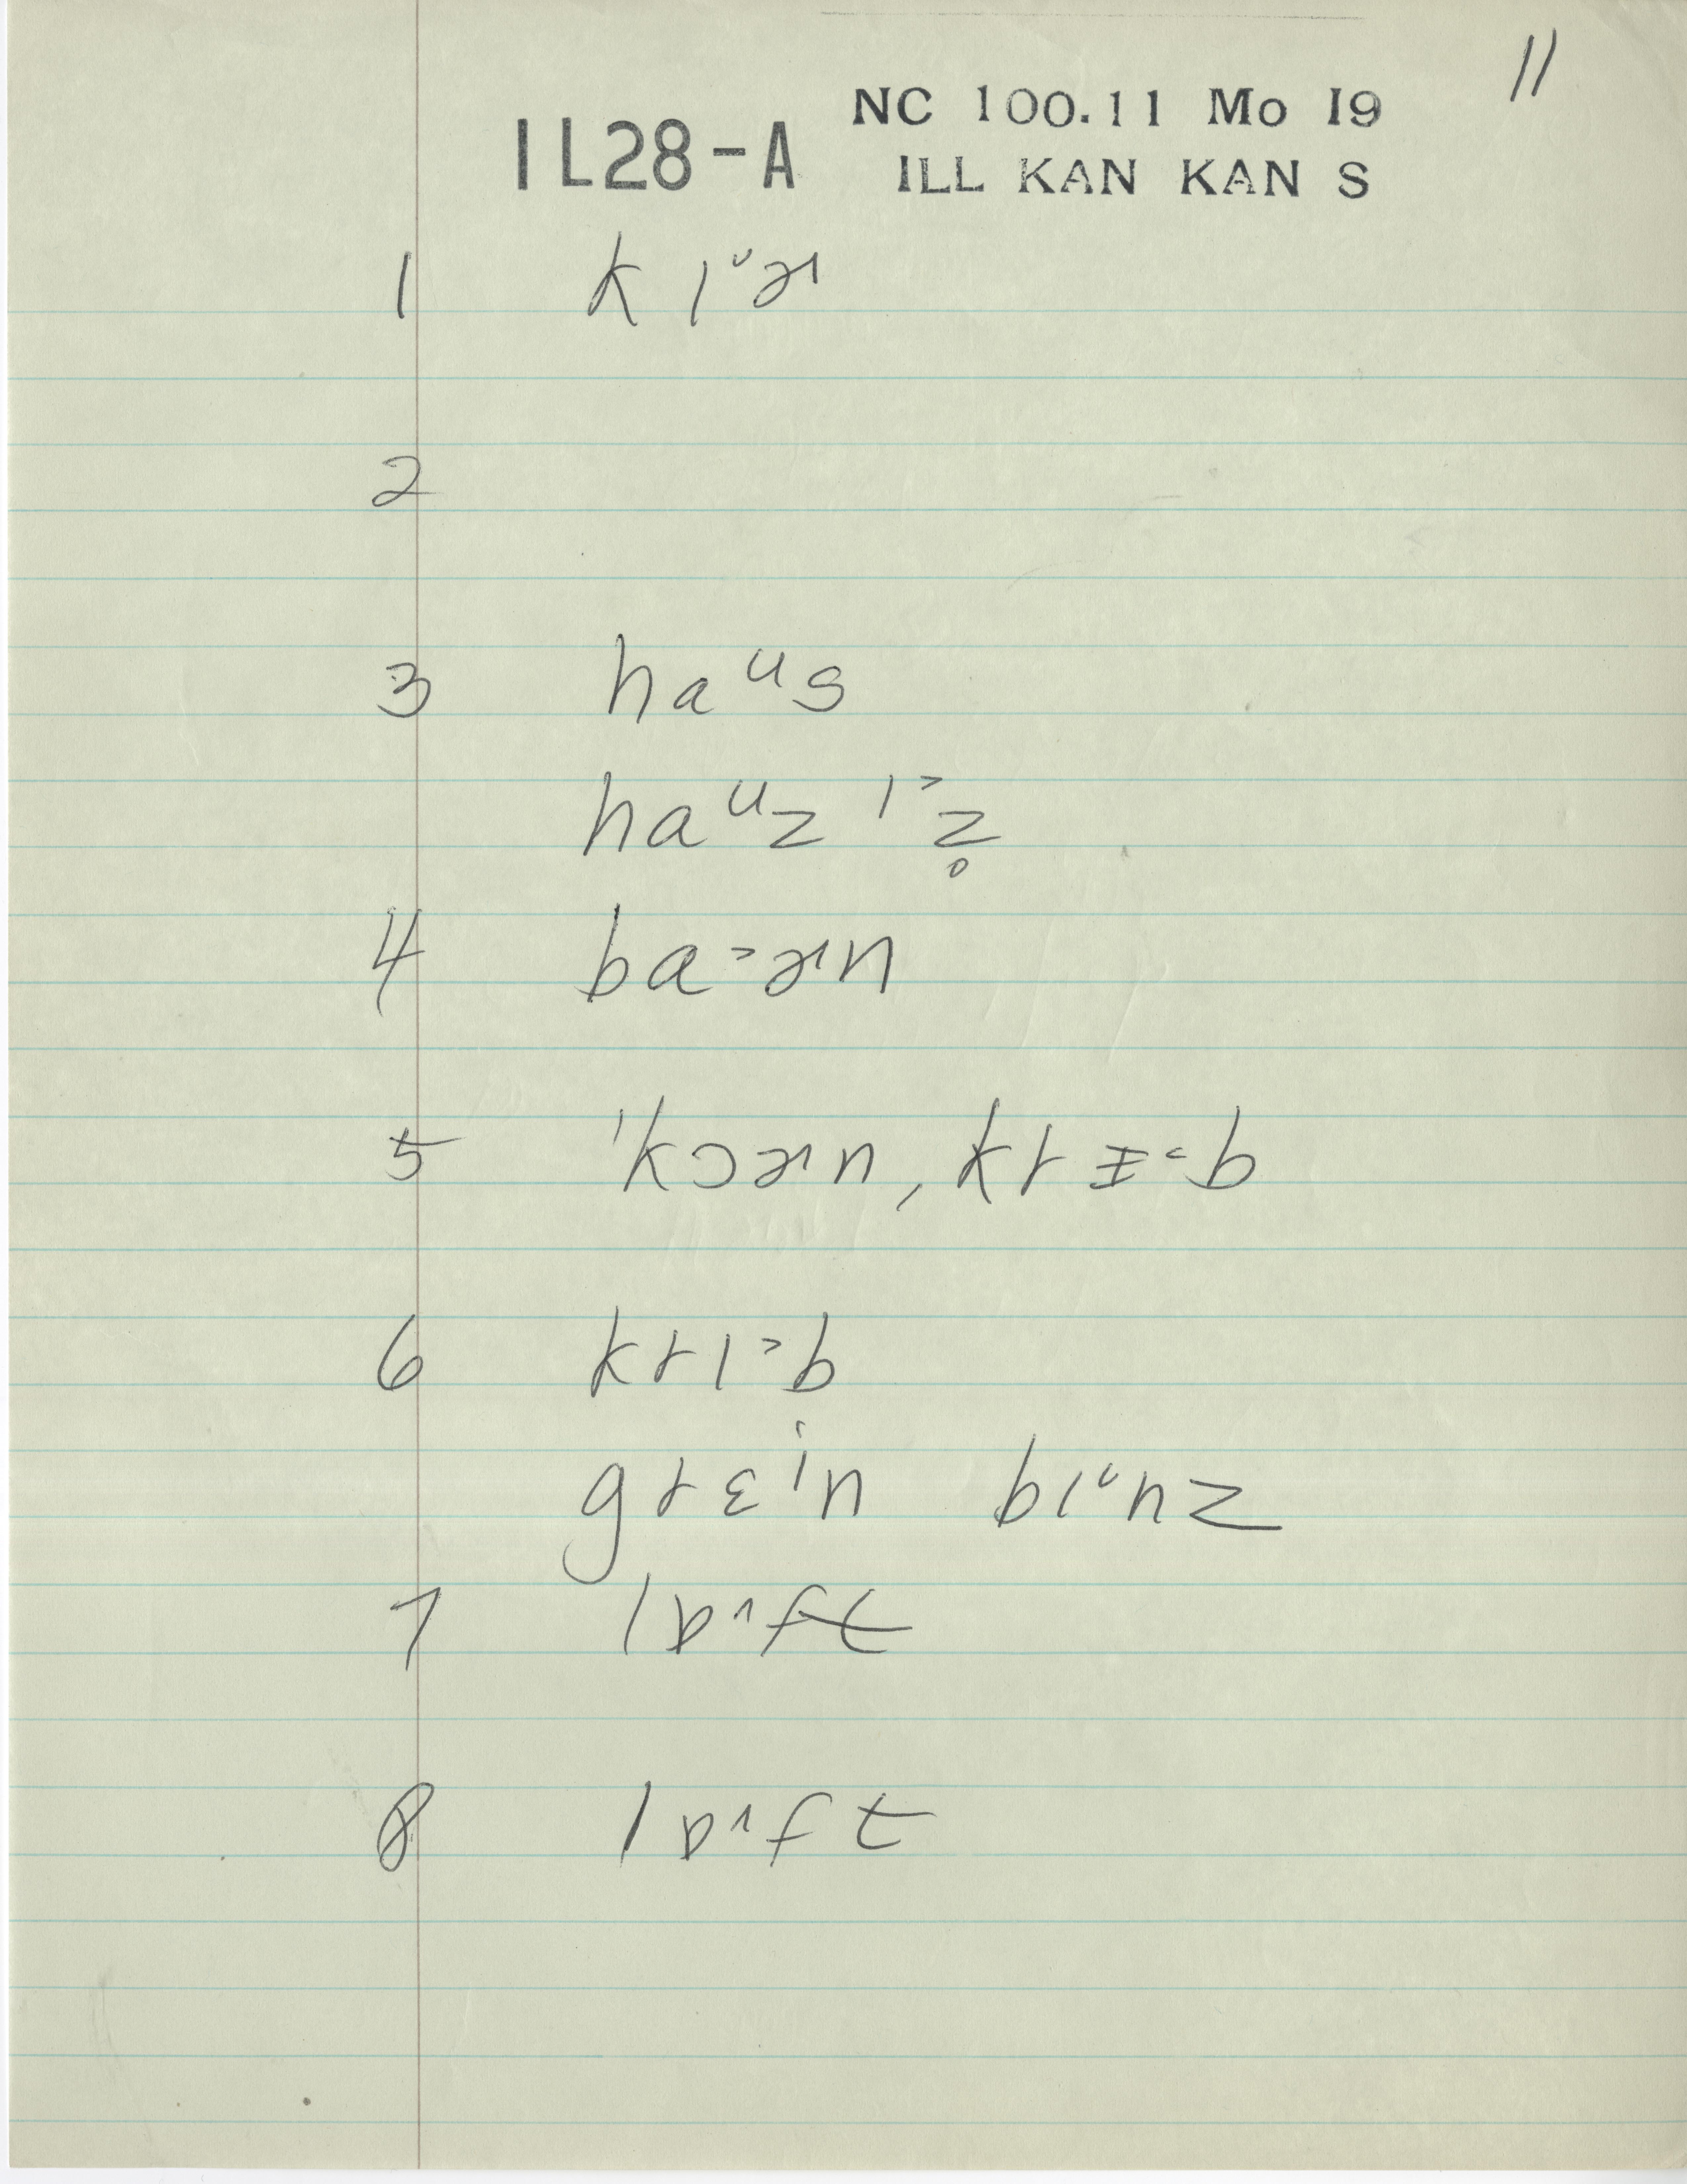 11
NC 100.11 Mo I9
1L28-A ILL KAN KAN S
1 k ɪ˘ɚ
2
3 haᵘs
haᵘz ɪ˃z̥
4 ba˃ɚn
5 ˈkɔɚn, krɪ̵˃b
6 krɪ˃b
grɛⁱn bɪ˘nz
7 lɒ˄ft
8 lɒ˄ft